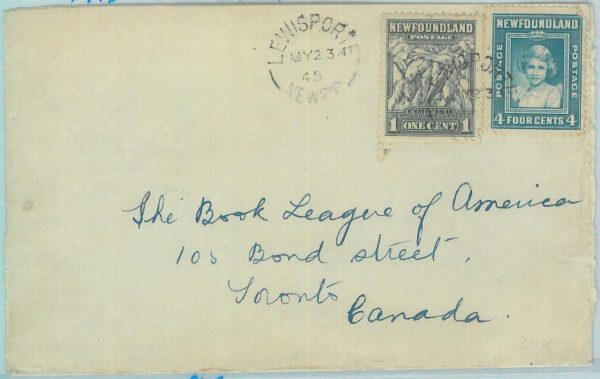 LEWISPORTE
MY 23
45
NEWF'D
NEWFOUNDLAND
POSTAGE
CODFISH
1 ONE CENT 1
NEWFOUNDLAND
POSTAGE
POSTAGE
4 FOUR CENTS 4
The Book League of America
105 Bond street,
Toronto
Canada.